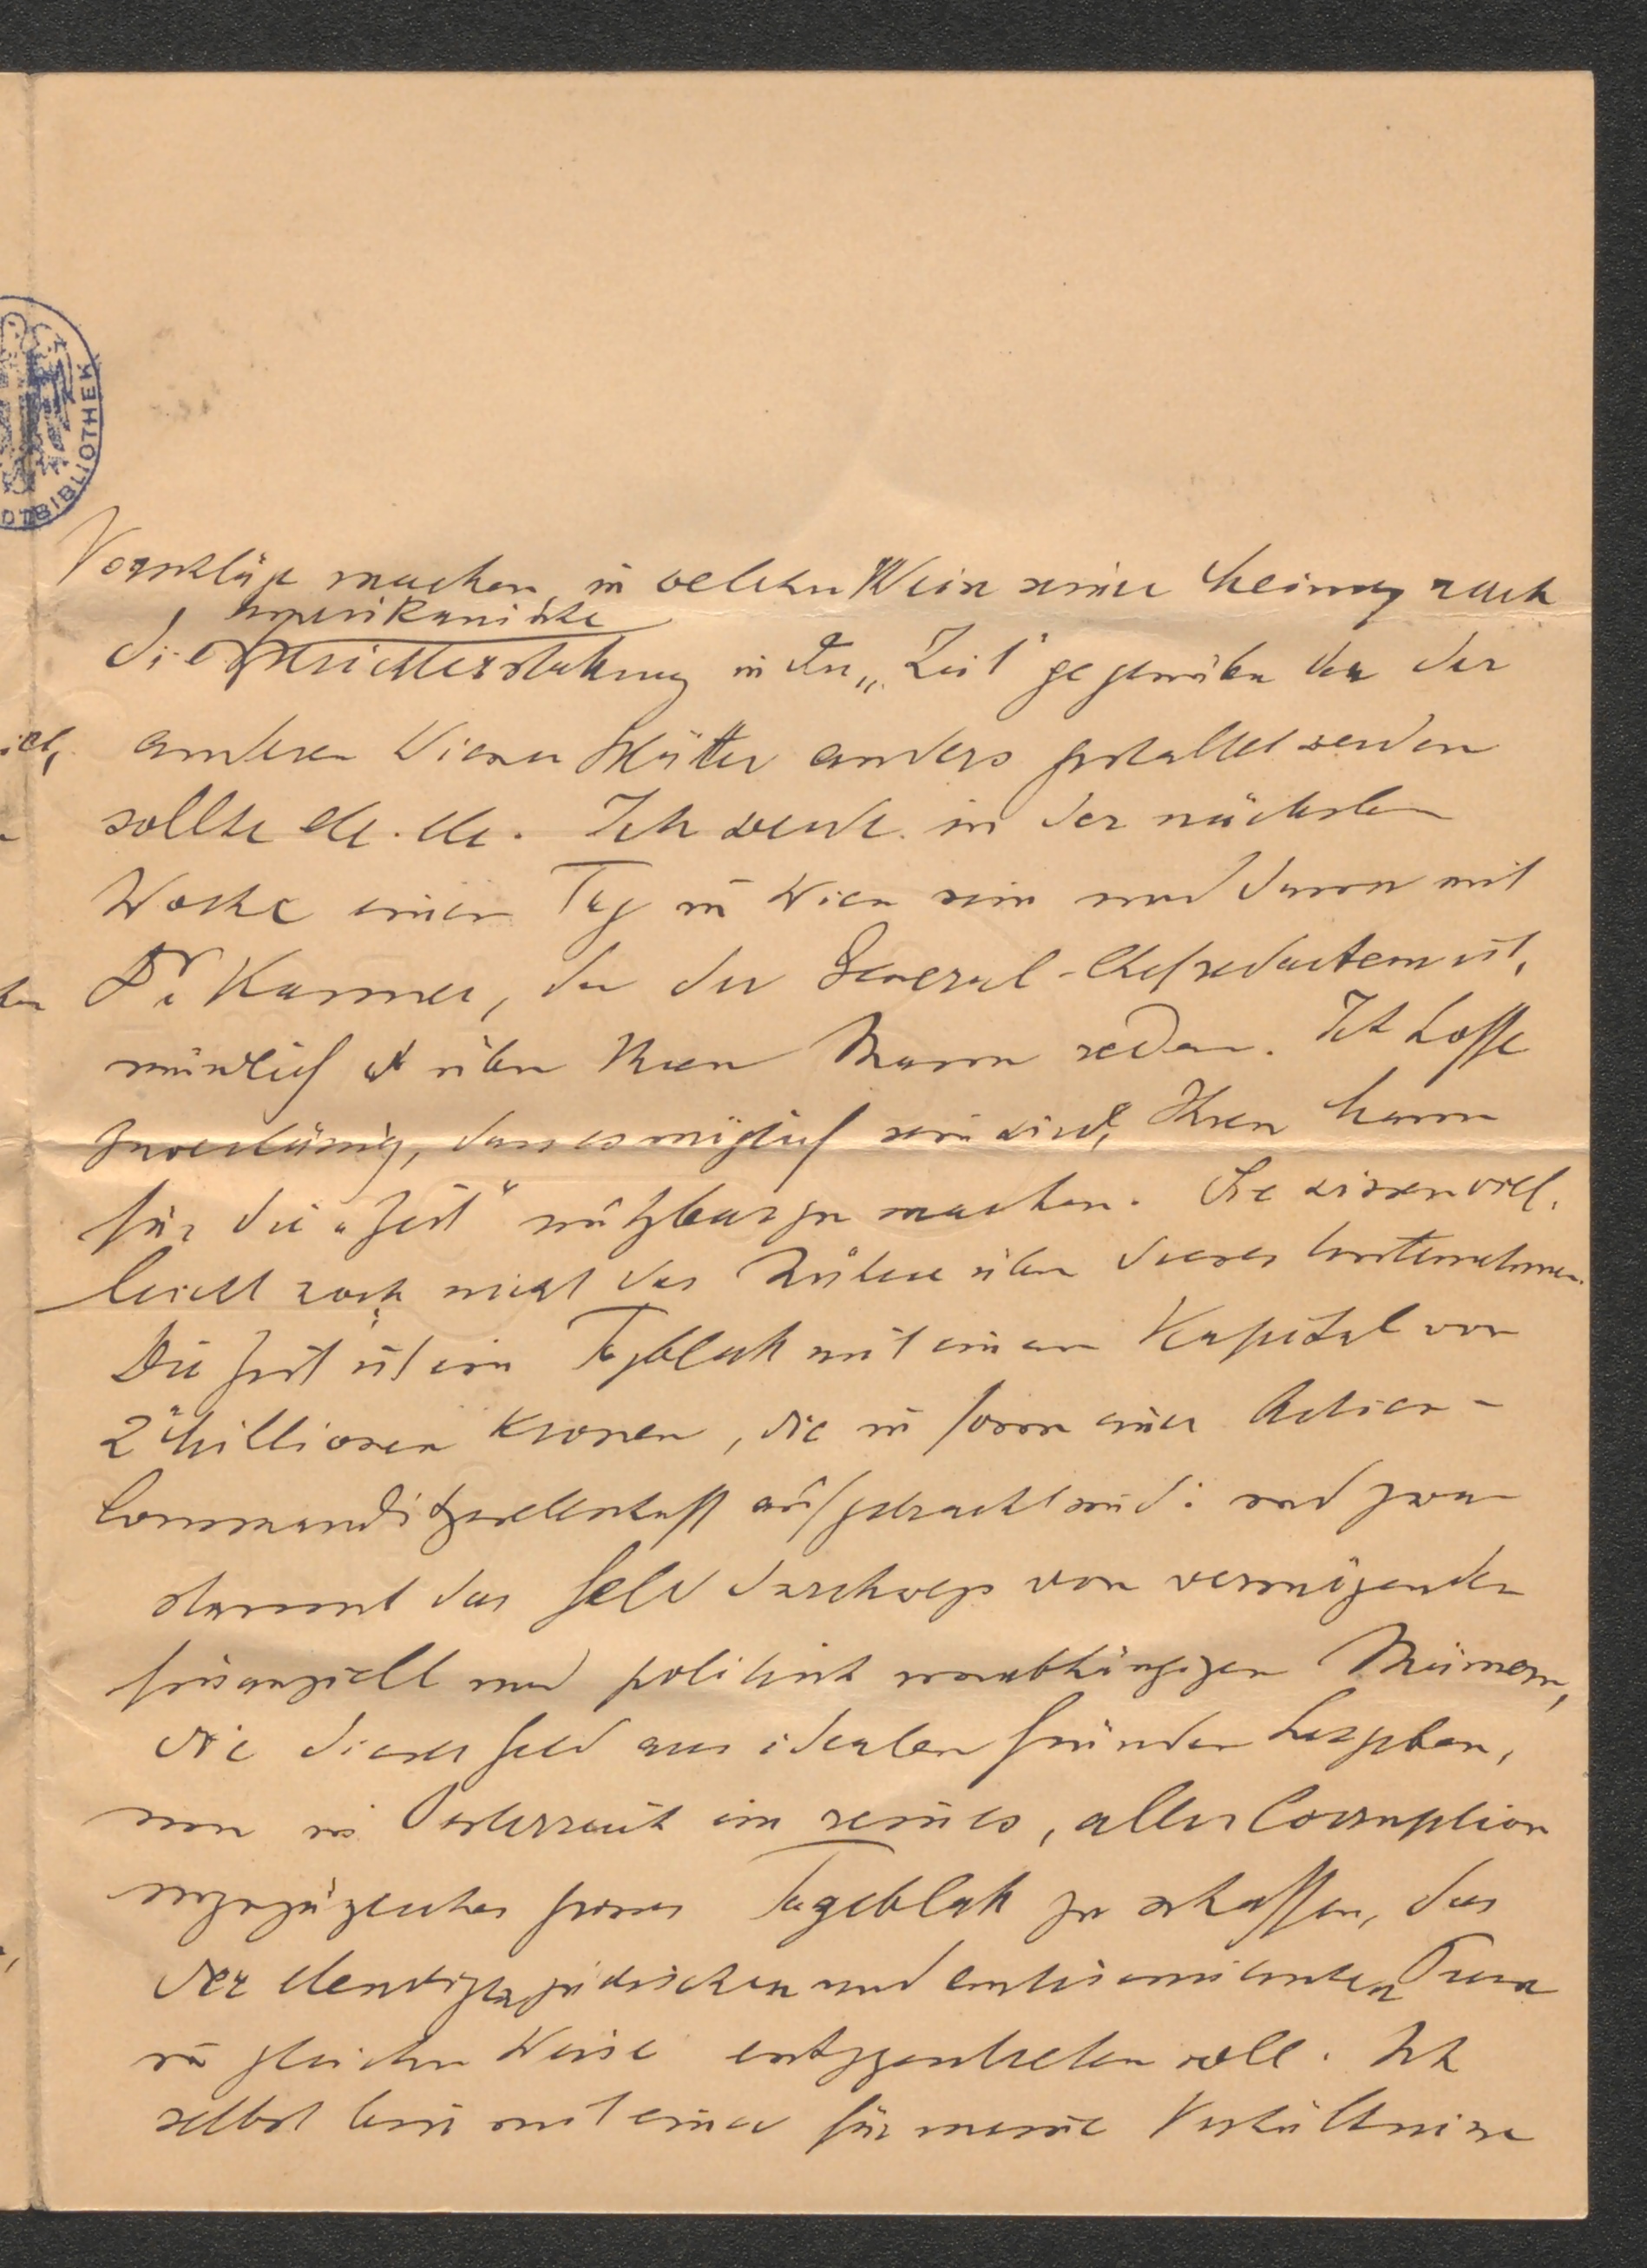 DTBIBLIOTHEK
Vorschläge machen, in welcher Weise seiner Meinung nach
amerikanische
die Berichterstattung in der „Zeit“ gegenüber der der
anderen Wiener Blätter anders gestaltet werden
sollte etc. etc. Ich werde in der nächsten
Woche einen Tag in Wien sein und dann mit
Dr. Kanner, der der General-Chefredacteur ist,
mündlich über Ihren Mann reden. Ich hoffe
zuverlässig, dass es möglich sein wird, Ihren Mann
für die „Zeit“ nutzbar zu machen. Sie wissen viel-
leicht noch nicht das Nähere über dieses Unternehmen.
Die Zeit ist ein Tagblatt mit einem Kapital von
2 Millionen Kronen, die in Form einer Actien-
Commanditgesellschaft aufgebracht sind: und zwar
stammt das Geld durchwegs von vermögenden
finanziell und politisch unabhängigen Männern,
die dieses Geld aus idealen Gründen hergeben,
um in Oesterreich ein reines, aller Corruption
unzugängliches grosses Tageblatt zu schaffen, das
der jüdischen und antisemitischen
in gleicher Weise entgegentreten soll. Ich
selbst bin mit einer für meine Verhältnisse